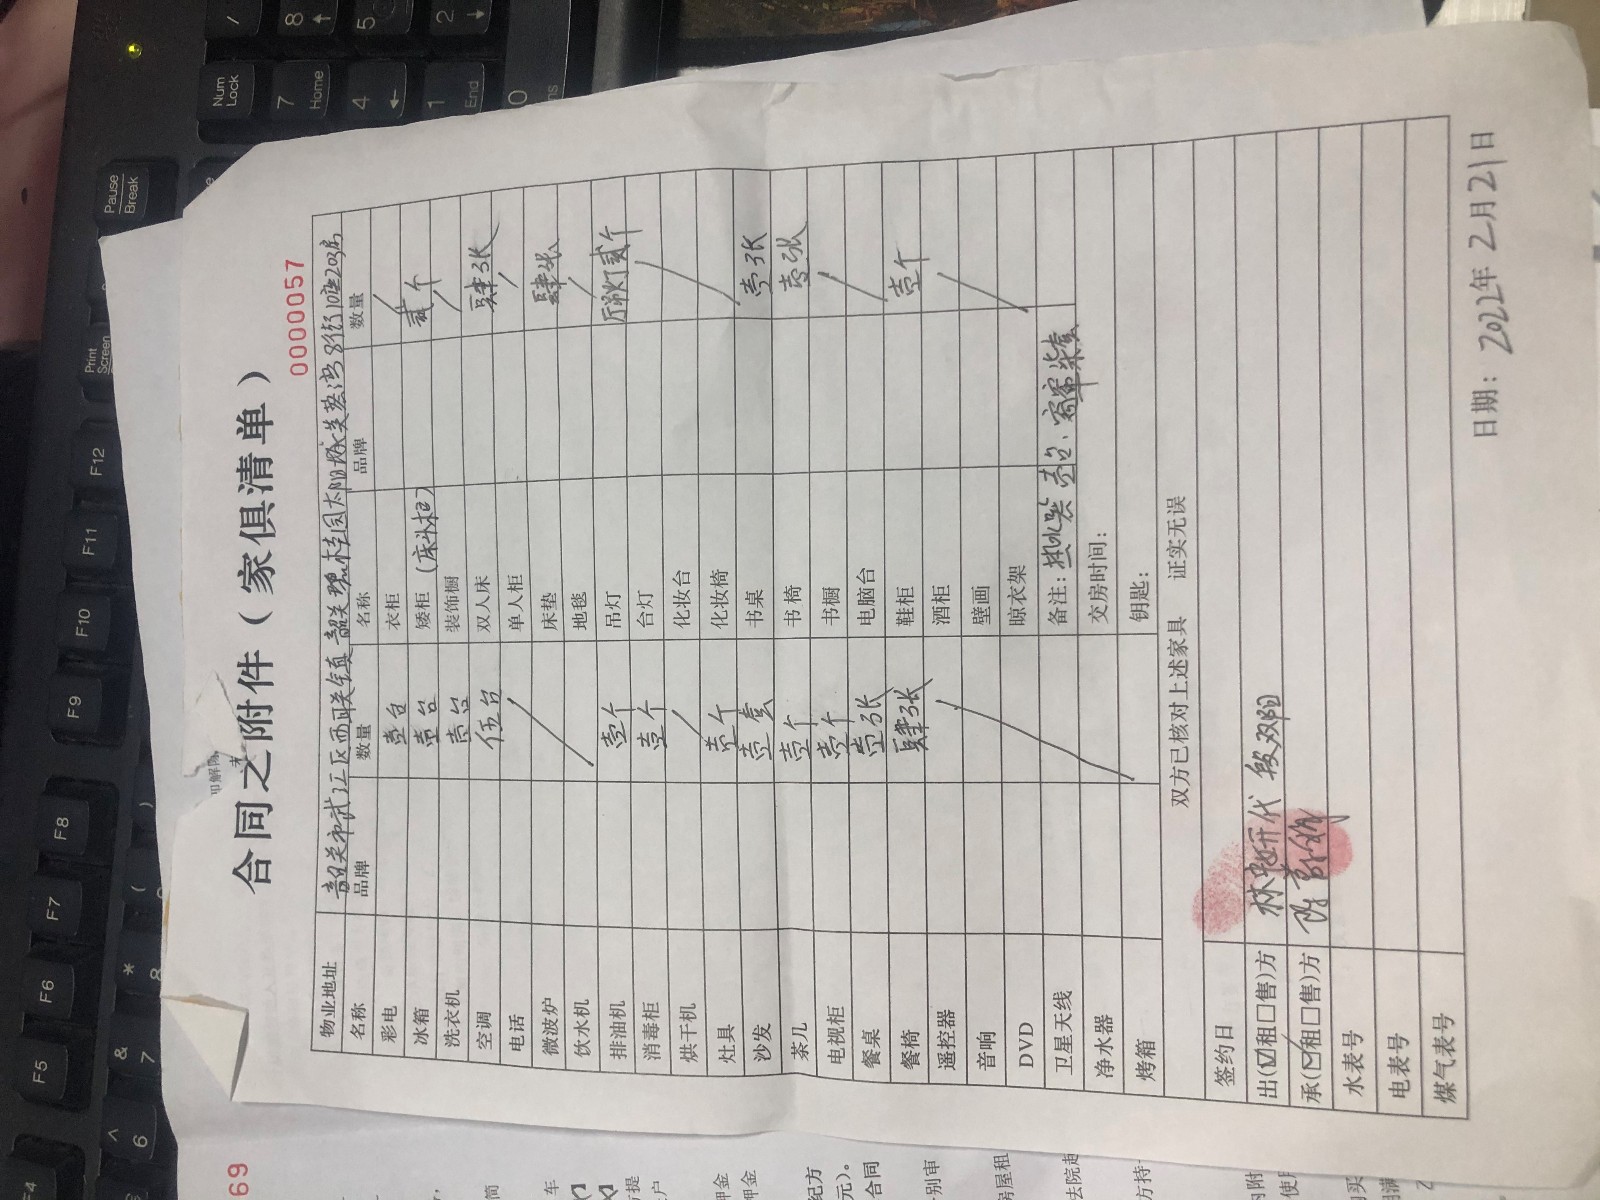 合同之附件（家俱清单）
0000057
物业地址 韶关市武江区西联镇韶关碧桂园太阳城芙蓉湾8街10座203房
名称 品牌 数量 名称 品牌 数量
彩电 壹台 衣柜 /
冰箱 壹台 矮柜（床头柜） 贰个
洗衣机 壹台 装饰橱 /
空调 伍台 双人床 肆张
电话 / 单人柜 /
微波炉 床垫 肆张
饮水机 地毯 /
排油机 壹个 吊灯 吊灯贰个
消毒柜 壹个 台灯
烘干机 / 化妆台
灶具 壹个 化妆椅
沙发 壹套 书桌 壹张
茶几 壹个 书椅 壹张
电视柜 壹个 书橱 /
餐桌 壹张 电脑台
餐椅 肆张 鞋柜 壹个
遥控器 酒柜 /
音响 壁画
DVD 晾衣架
卫星天线 备注：热水器壹台、窗帘柒套
净水器 交房时间：
烤箱 钥匙：
双方已核对上述家具 证实无误
签约日
出(☑租□售)方 林 代 段双阳
承(☑租□售)方 陈
水表号
电表号
煤气表号
日期：2022年2月21日
Num Lock
7 Home
8
4
5
1 End
2
0
/
Pause Break
Print Screen
F12
F11
F10
F9
F8
F7
F6
F5
F4
^ 6
& 7
* 8
(
)
69
车
押金
押金
纪方
元）。
合同
别审
房屋租
方持